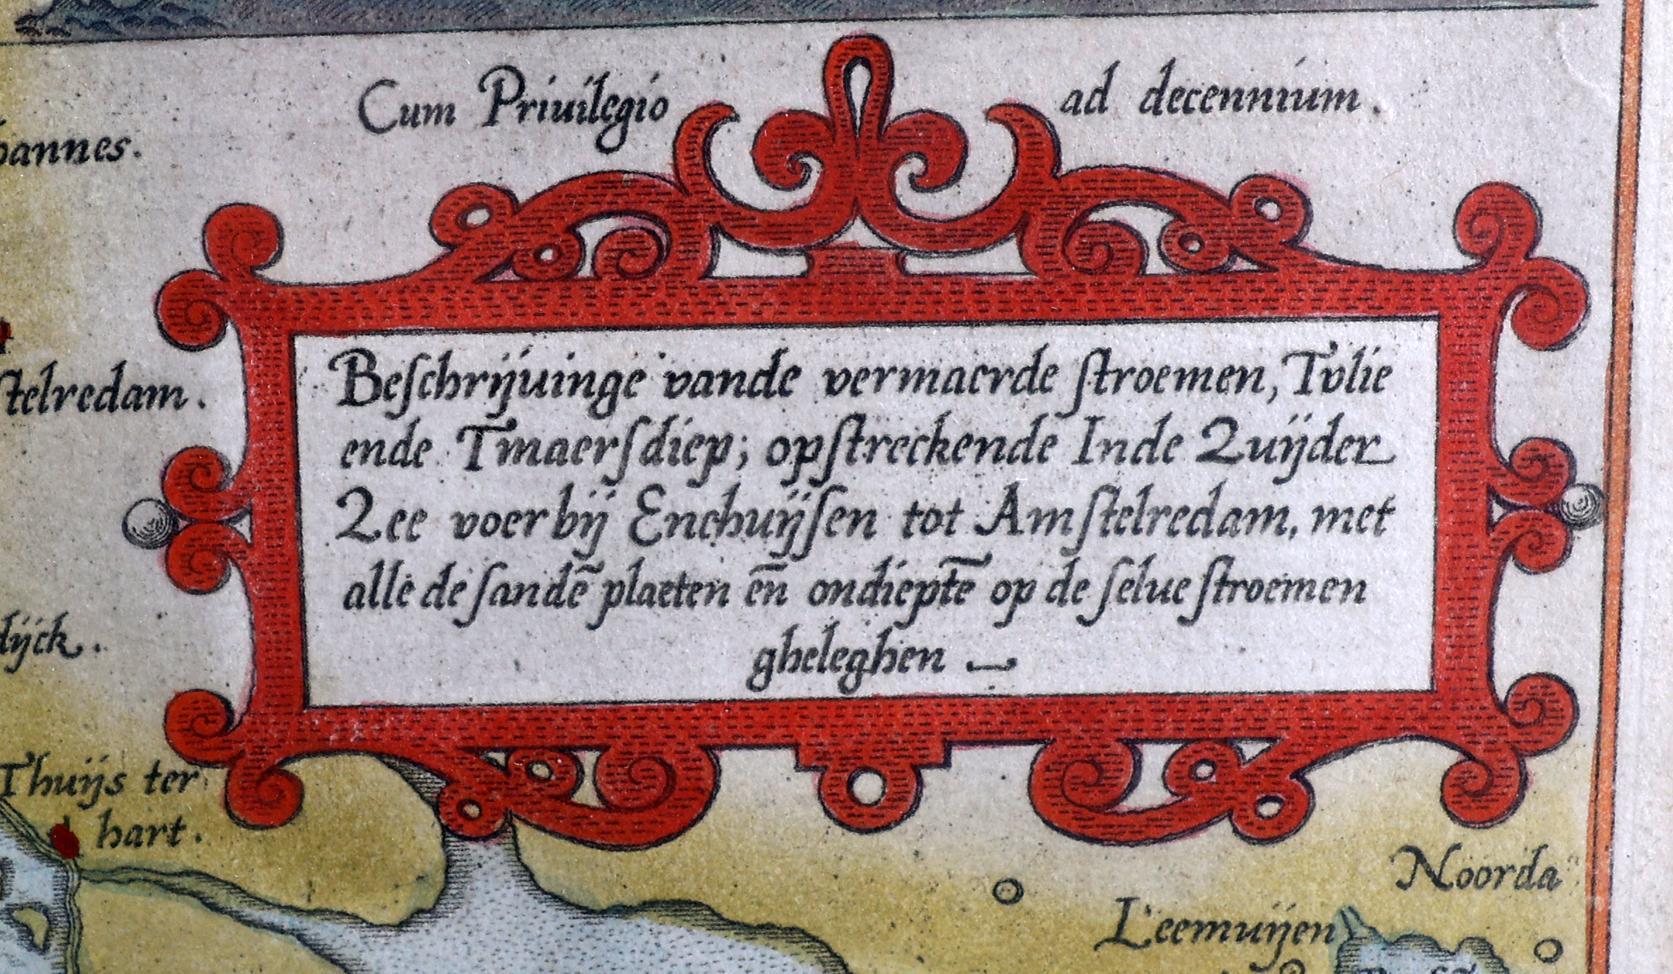 Cum Priuilegio ad decennium.
oannes.
Beſchrijuinge vande vermaerde ſtroemen, Tvlie
ſtelredam.
ende Tmaerſdiep; opſtreckende Inde Zuijder
Zee voerbij Enchuijſen tot Amſtelredam, met
alle de ſandē plaeten en̄ ondieptē op de ſelue ſtroemen
dijck.
gheleghen
Thuijs ter
hart.
Noorda
Leemuijen